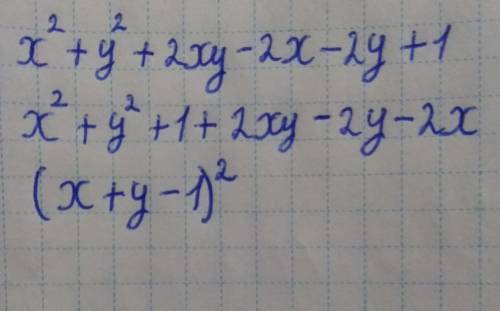 x² + y² + 2xy - 2x - 2y + 1
x² + y² + 1 + 2xy - 2y - 2x
(x + y - 1)²